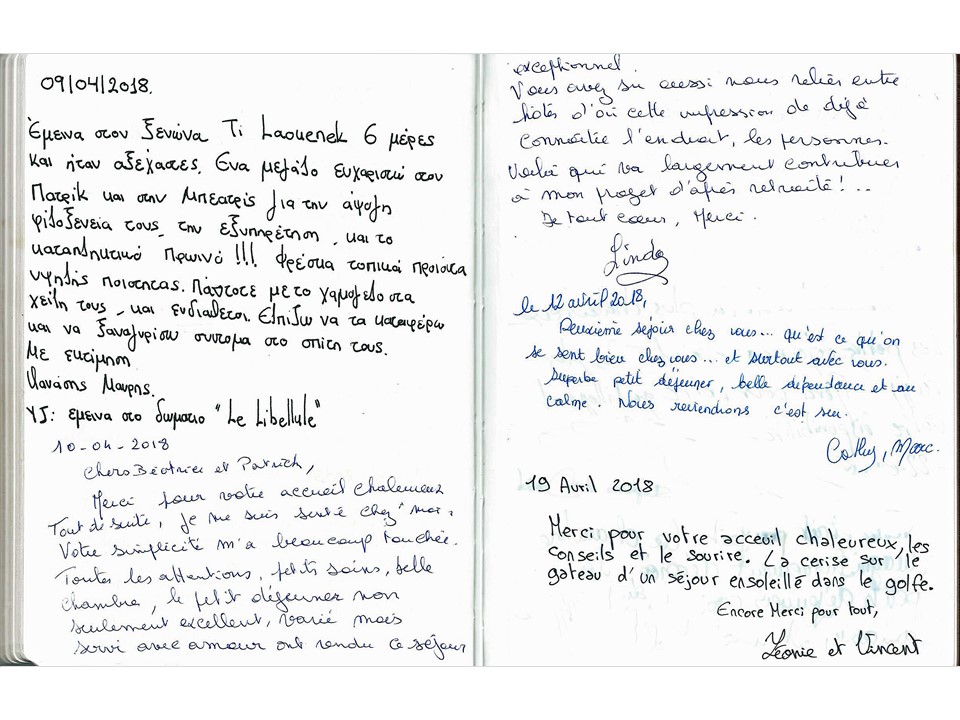 09/04/2018.
Έμεινα στον ξενώνα Ti Laouenek 6 μέρες
και ήταν αξέχαστες. Ένα μεγάλο ευχαριστώ στον
Πατρίκ και στην Μπεατρίς για την άψογη
φιλοξενεία τους, την εξυπηρέτηση, και το
καταπληκτικό πρωινό!!! Φρέσκα τοπικά προϊόντα
υψηλής ποιότητας. Πάντοτε με το χαμόγελο στα
χείλη τους, και ενδιάθετοι. Ελπίζω να τα καταφέρω
και να ξαναγυρίσω σύντομα στο σπίτι τους.
Με εκτίμηση
Θανάσης Μαυρής.
ΥΣ: εμεινα στο δωματιο "Le Libellule"
10-04-2018
Chers Béatrice et Patrick,
Merci pour votre accueil chaleureux
Tout de suite, je me suis sentie chez "moi".
Votre simplicité m'a beaucoup touchée.
Toutes les attentions, petits soins, belle
chambre, le petit déjeuner non
seulement excellent, varié mais
servi avec amour ont rendu ce séjour
exceptionnel.
Vous avez su aussi nous relier entre
hôtes d'où cette impression de déjà
connaître l'endroit, les personnes.
Voilà qui va largement contribuer
à mon projet d'après retraite!...
De tout cœur, Merci.
Linda
le 12 avril 2018,
Deuxième séjour chez vous... qu'est ce qu'on
se sent bien chez vous... et surtout avec vous.
Superbe petit déjeuner, belle dépendance et au
calme. Nous reviendrons c'est sur.
Cathy, Marc.
19 Avril 2018
Merci pour votre acceuil chaleureux, les
conseils et le sourire. La cerise sur le
gateau d'un séjour ensoleillé dans le golfe.
Encore Merci pour tout,
Léonie et Vincent